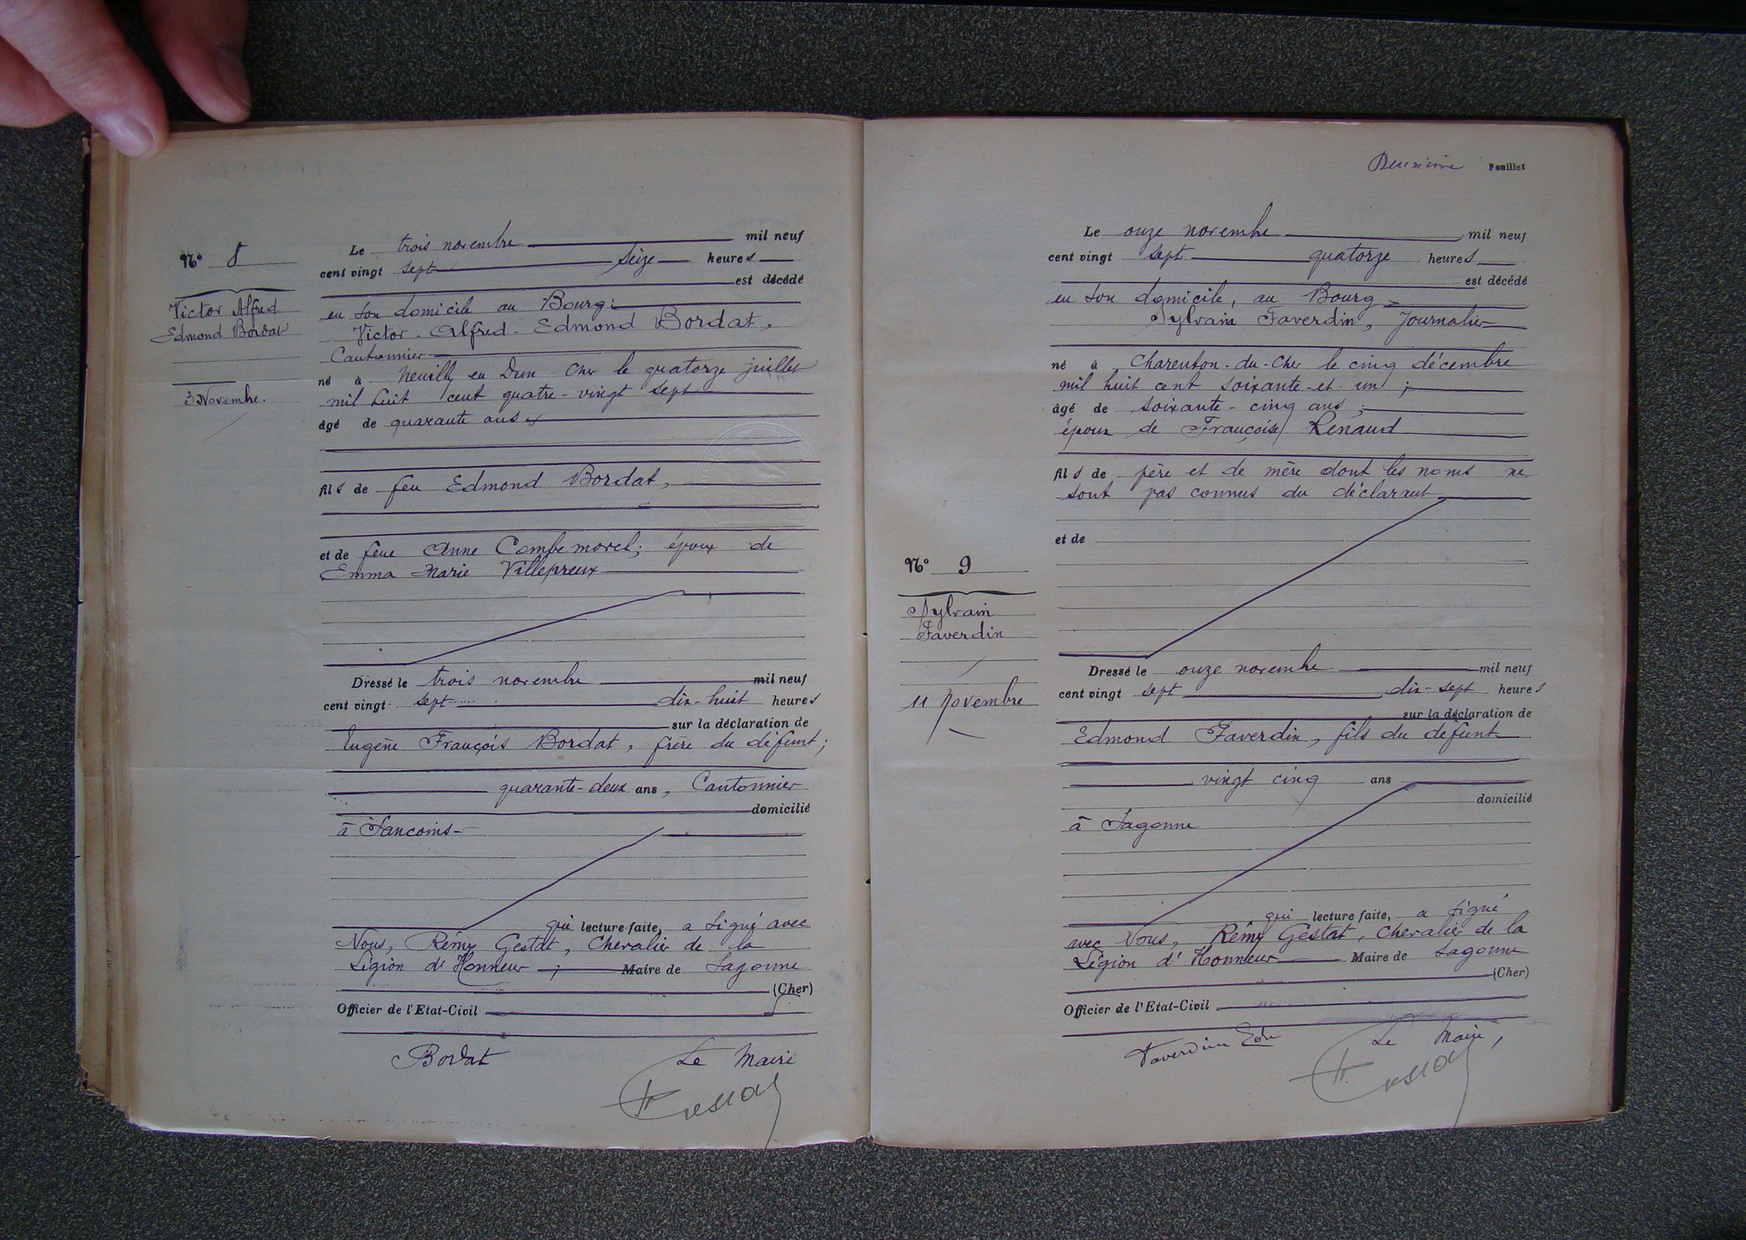 N° 8
Victor Alfred
Edmond Bordat
3 Novembre.
Le trois novembre mil neuf
cent vingt sept seize heures
est décédé
en son domicile au Bourg:
Victor-Alfred-Edmond Bordat,
Cantonnier
né à Neuilly en Dun Cher le quatorze juillet
mil huit cent quatre-vingt sept
âgé de quarante ans
fils de feu Edmond Bordat,
et de feue Anne Combemorel; époux de
Emma Marie Villepreux
Dressé le trois novembre mil neuf
cent vingt sept dix-huit heures
sur la déclaration de
Eugène François Bordat, frère du défunt;
quarante-deux ans, Cantonnier
domicilié
à Sancoins
qui lecture faite, a signé avec
Nous, Rémy Gestat, Chevalier de la
Légion d'Honneur; Maire de Sagonne
(Cher)
Officier de l'Etat-Civil
Bordat Le Maire
Deuxième Feuillet
N° 9
Sylvain
Faverdin
11 Novembre
Le onze novembre mil neuf
cent vingt sept quatorze heures
est décédé
en son domicile, au Bourg
Sylvain Faverdin, Journalier
né à Charenton-du-Cher le cinq décembre
mil huit cent soixante-et-un;
âgé de soixante-cinq ans;
époux de Françoise Renaud
fils de père et de mère dont les noms ne
sont pas connus du déclarant
et de
Dressé le onze novembre mil neuf
cent vingt sept dix-sept heures
sur la déclaration de
Edmond Faverdin, fils du défunt
vingt cinq ans
domicilié
à Sagonne
qui lecture faite, a signé
avec Nous, Rémy Gestat, Chevalier de la
Légion d'Honneur Maire de Sagonne
(Cher)
Officier de l'Etat-Civil
Faverdin Ed Le Maire,